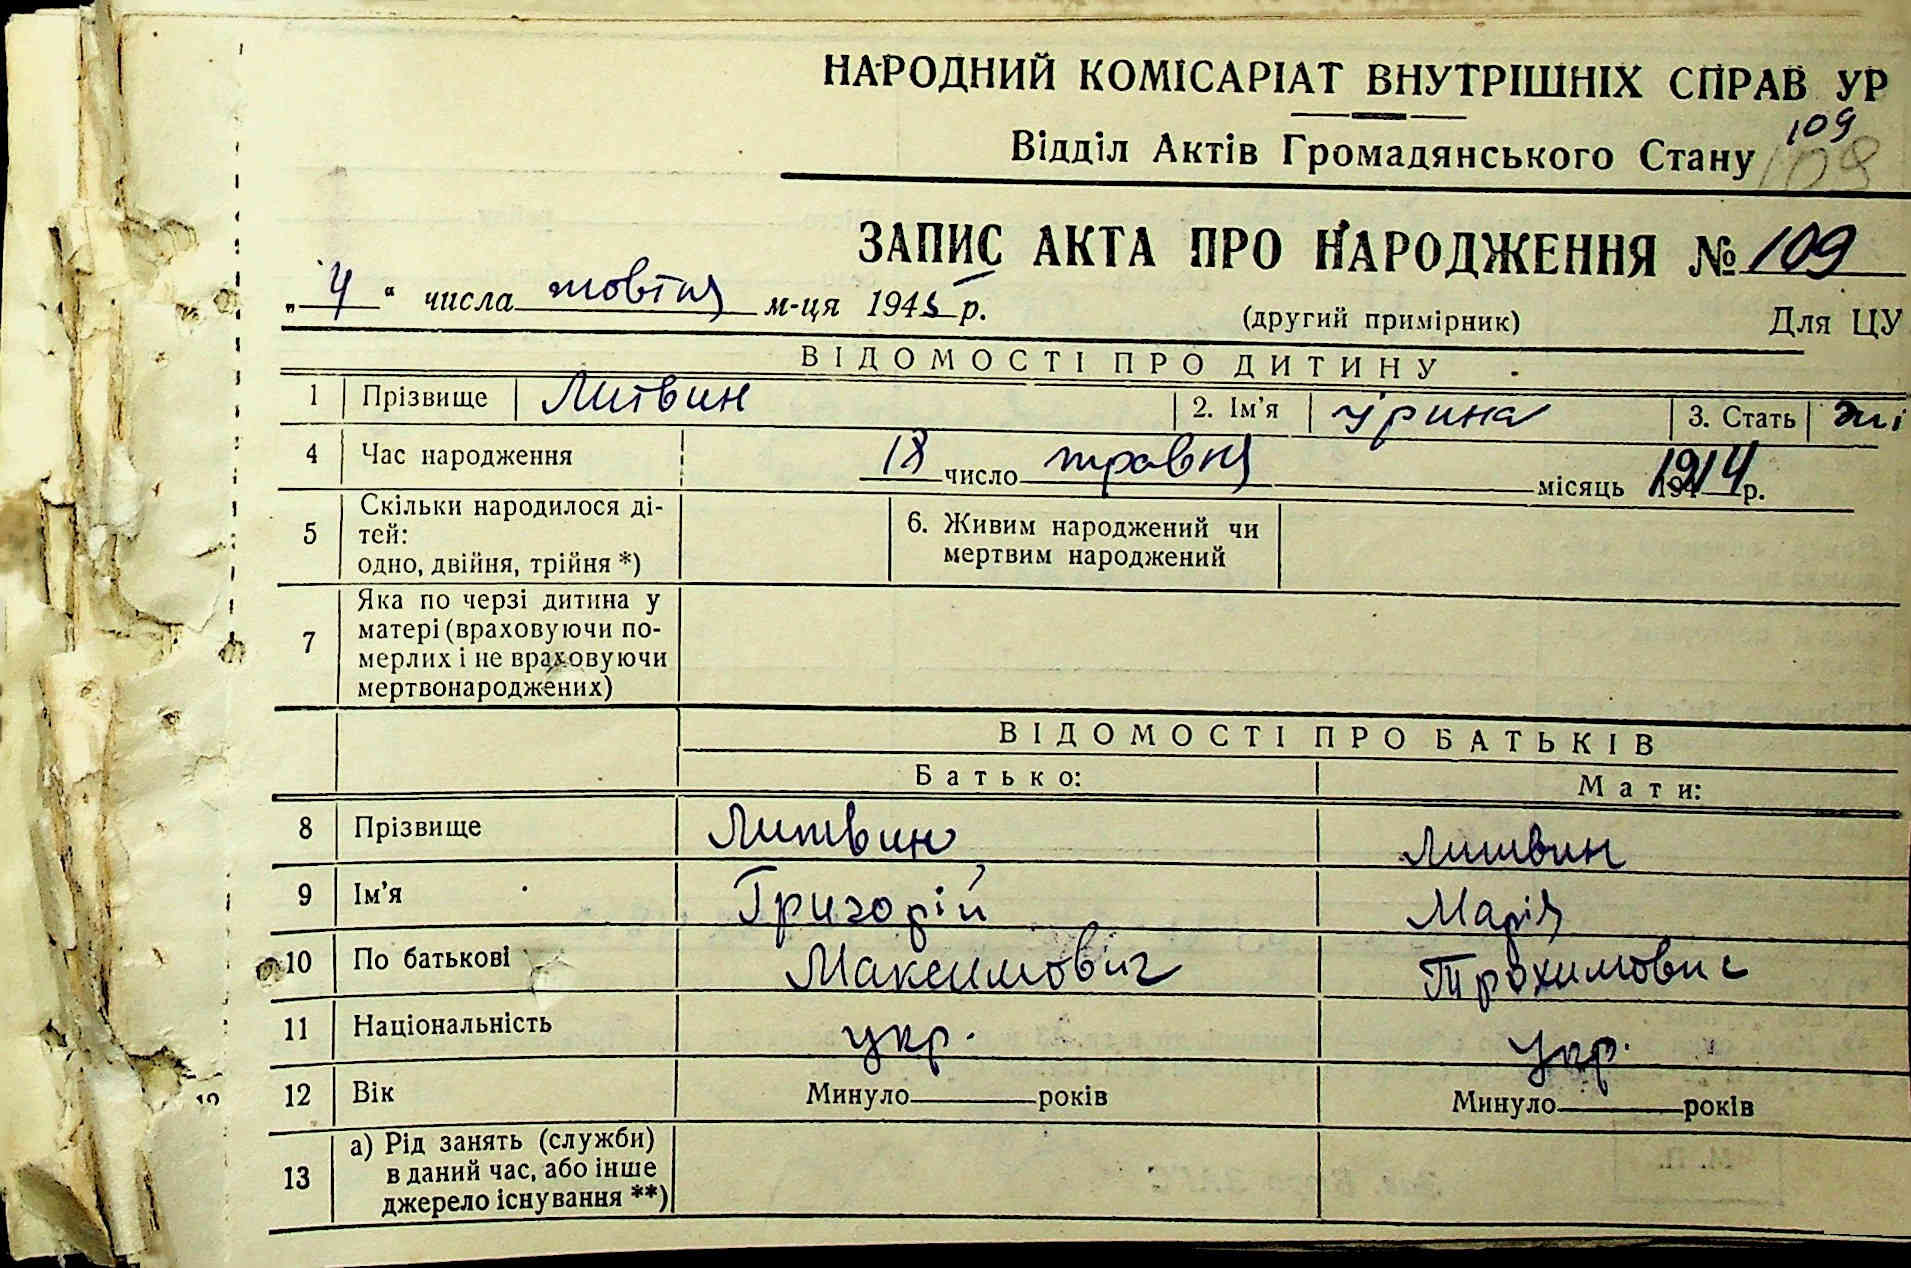 НАРОДНИЙ КОМІСАРІАТ ВНУТРІШНІХ СПРАВ УР
109
Відділ Актів Громадянського Стану 109
ЗАПИС АКТА ПРО НАРОДЖЕННЯ № 109
„ 4 “ числа жовтня м-ця 1945 р. (другий примірник) Для ЦУ
ВІДОМОСТІ ПРО ДИТИНУ
1 Прізвище Литвин 2. Ім'я Ірина 3. Стать жі
4 Час народження 18 число травня місяць 1914 р.
5 Скільки народилося ді-
тей:
одно, двійня, трійня *)
6. Живим народжений чи
мертвим народжений
7 Яка по черзі дитина у
матері (враховуючи по-
мерлих і не враховуючи
мертвонароджених)
ВІДОМОСТІ ПРО БАТЬКІВ
Батько: Мати:
8 Прізвище Литвин Литвин
9 Ім'я Григорій Марія
10 По батькові Максимович Трохимовис
11 Національність укр. укр.
12 Вік Минуло років Минуло років
13 а) Рід занять (служби)
в даний час, або інше
джерело існування **)